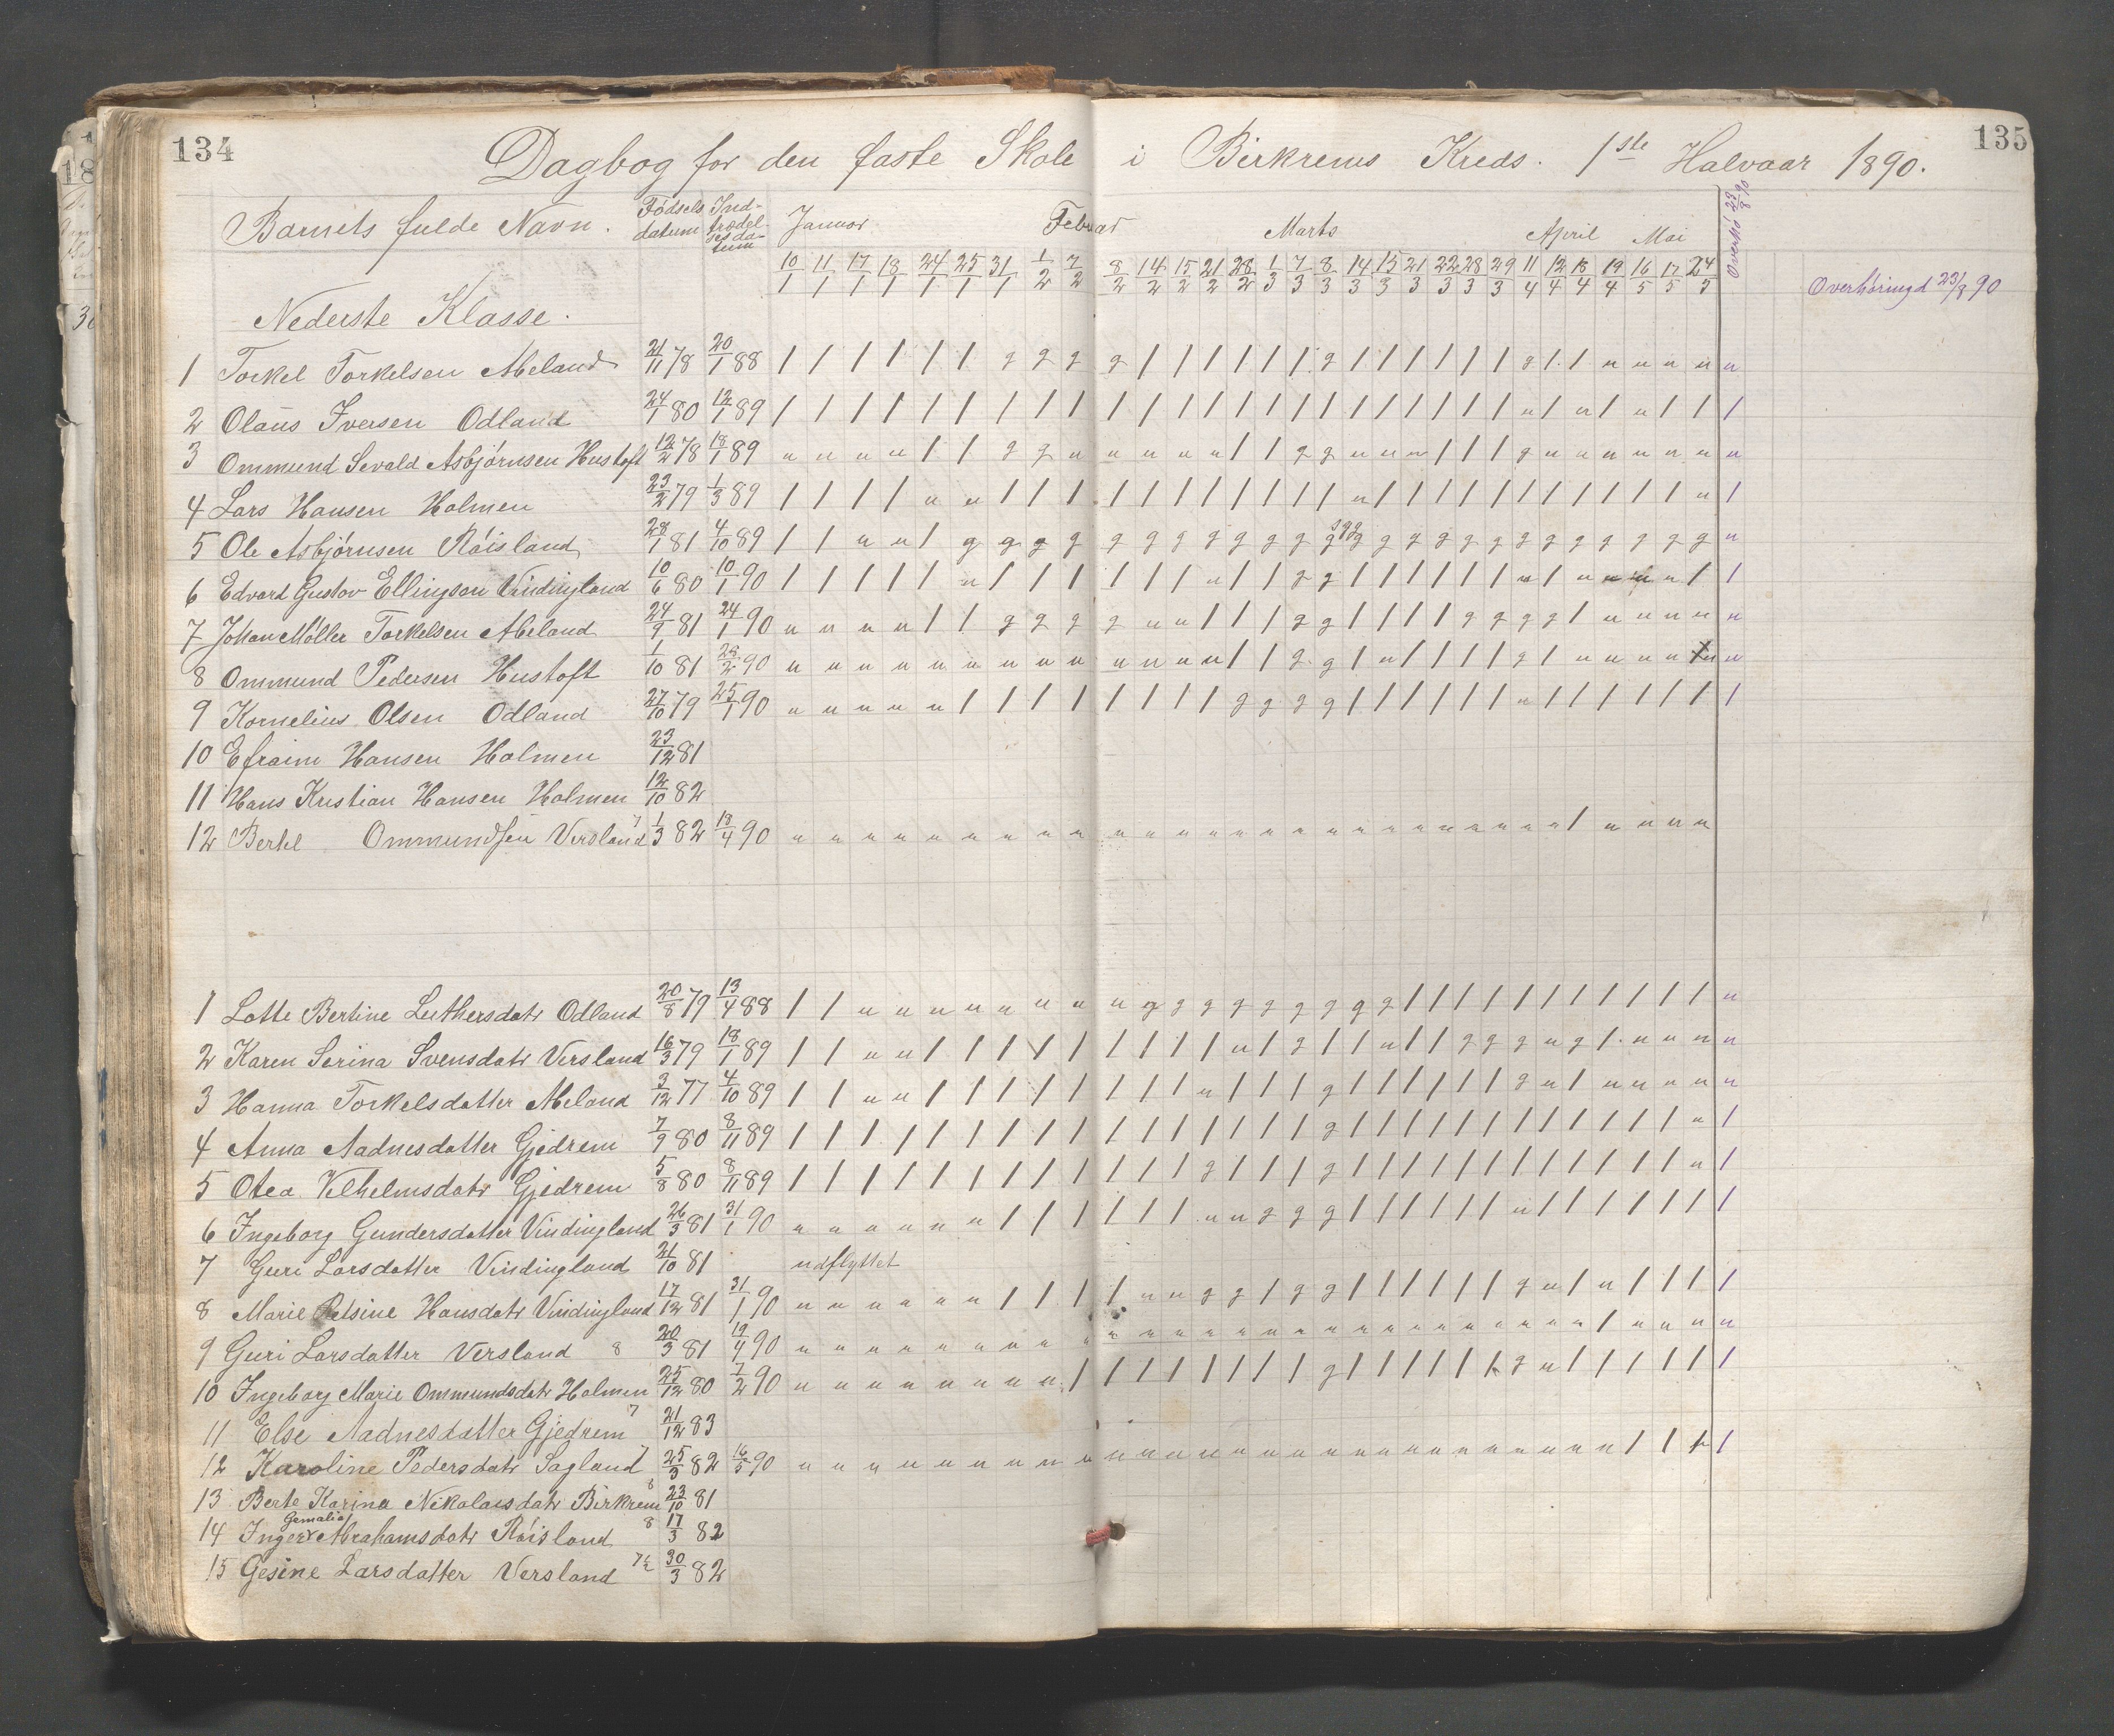 134
135
Dagbog for den faste Skole i Birkrems Kreds. 1ste Halvaar 1890.
Barnets fulde Navn. Fødsels datum Ind- trædel- ses da- tum Januar Februar Marts April Mai Overhø 23/8 90
10/1 11/1 17/1 18/1 24/1 25/1 31/1 1/2 7/2 8/2 14/2 15/2 21/2 28/2 1/3 7/3 8/3 14/3 15/3 21/3 22/3 28/3 29/3 11/4 12/4 18/4 19/4 16/5 17/5 24/5
Overhøring d 23/8 90
Nederste Klasse.
1 Torkel Torkelsen Abeland 21/11 78 20/1 88
2 Olaus Iversen Odland 24/1 80 12/1 89
3 Ommund Sevald Asbjørnsen Hustoft 12/2 78 18/1 89
4 Lars Hansen Holmen 23/2 79 1/3 89
5 Ole Asbjørnsen Røisland 28/1 81 4/10 89
6 Edvard Gustav Ellingsen Vindingland 10/6 80 10/1 90
7 Johan Møller Torkelsen Abeland 24/9 81 24/1 90
8 Ommund Pedersen Hustoft 1/10 81 28/2 90
9 Kornelius Olsen Odland 27/10 79 25/1 90
10 Efraim Hansen Holmen 23/12 81
11 Hans Kristian Hansen Holmen 12/10 82
12 Bertel Ommundsen Versland 7 1/3 82 18/4 90
1 Lotte Bertine Luthersdatr Odland 20/8 79 13/4 88
2 Karen Serina Svensdatr Versland 16/3 79 18/1 89
3 Hanna Torkelsdatter Abeland 3/12 77 4/10 89
4 Anna Aadnesdatter Gjedrem 7/9 80 8/11 89
5 Otea Vilhelmsdatr Gjedrem 5/8 80 8/11 89
6 Ingeborg Gundersdatter Vindingland 26/3 81 31/1 90
7 Guri Larsdatter Vindingland 21/10 81 udflyttet
8 Marie Betsine Hansdatr Vindingland 17/12 81 31/1 90
9 Guri Larsdatter Versland 8 20/3 81 19/4 90
10 Ingeborg Marie Ommundsdatr Holmen 25/12 80 7/2 90
11 Else Aadnesdatter Gjedrem 7 21/12 83
12 Karoline Pedersdatr Sagland 7 25/3 82 16/5 90
13 Berte Karina Nikolaisdatr Birkrem 8 23/10 81
14 Inger Gemalia Abrahamsdatr Røisland 8 17/3 82
15 Gesine Larsdatter Versland 7½ 30/3 82